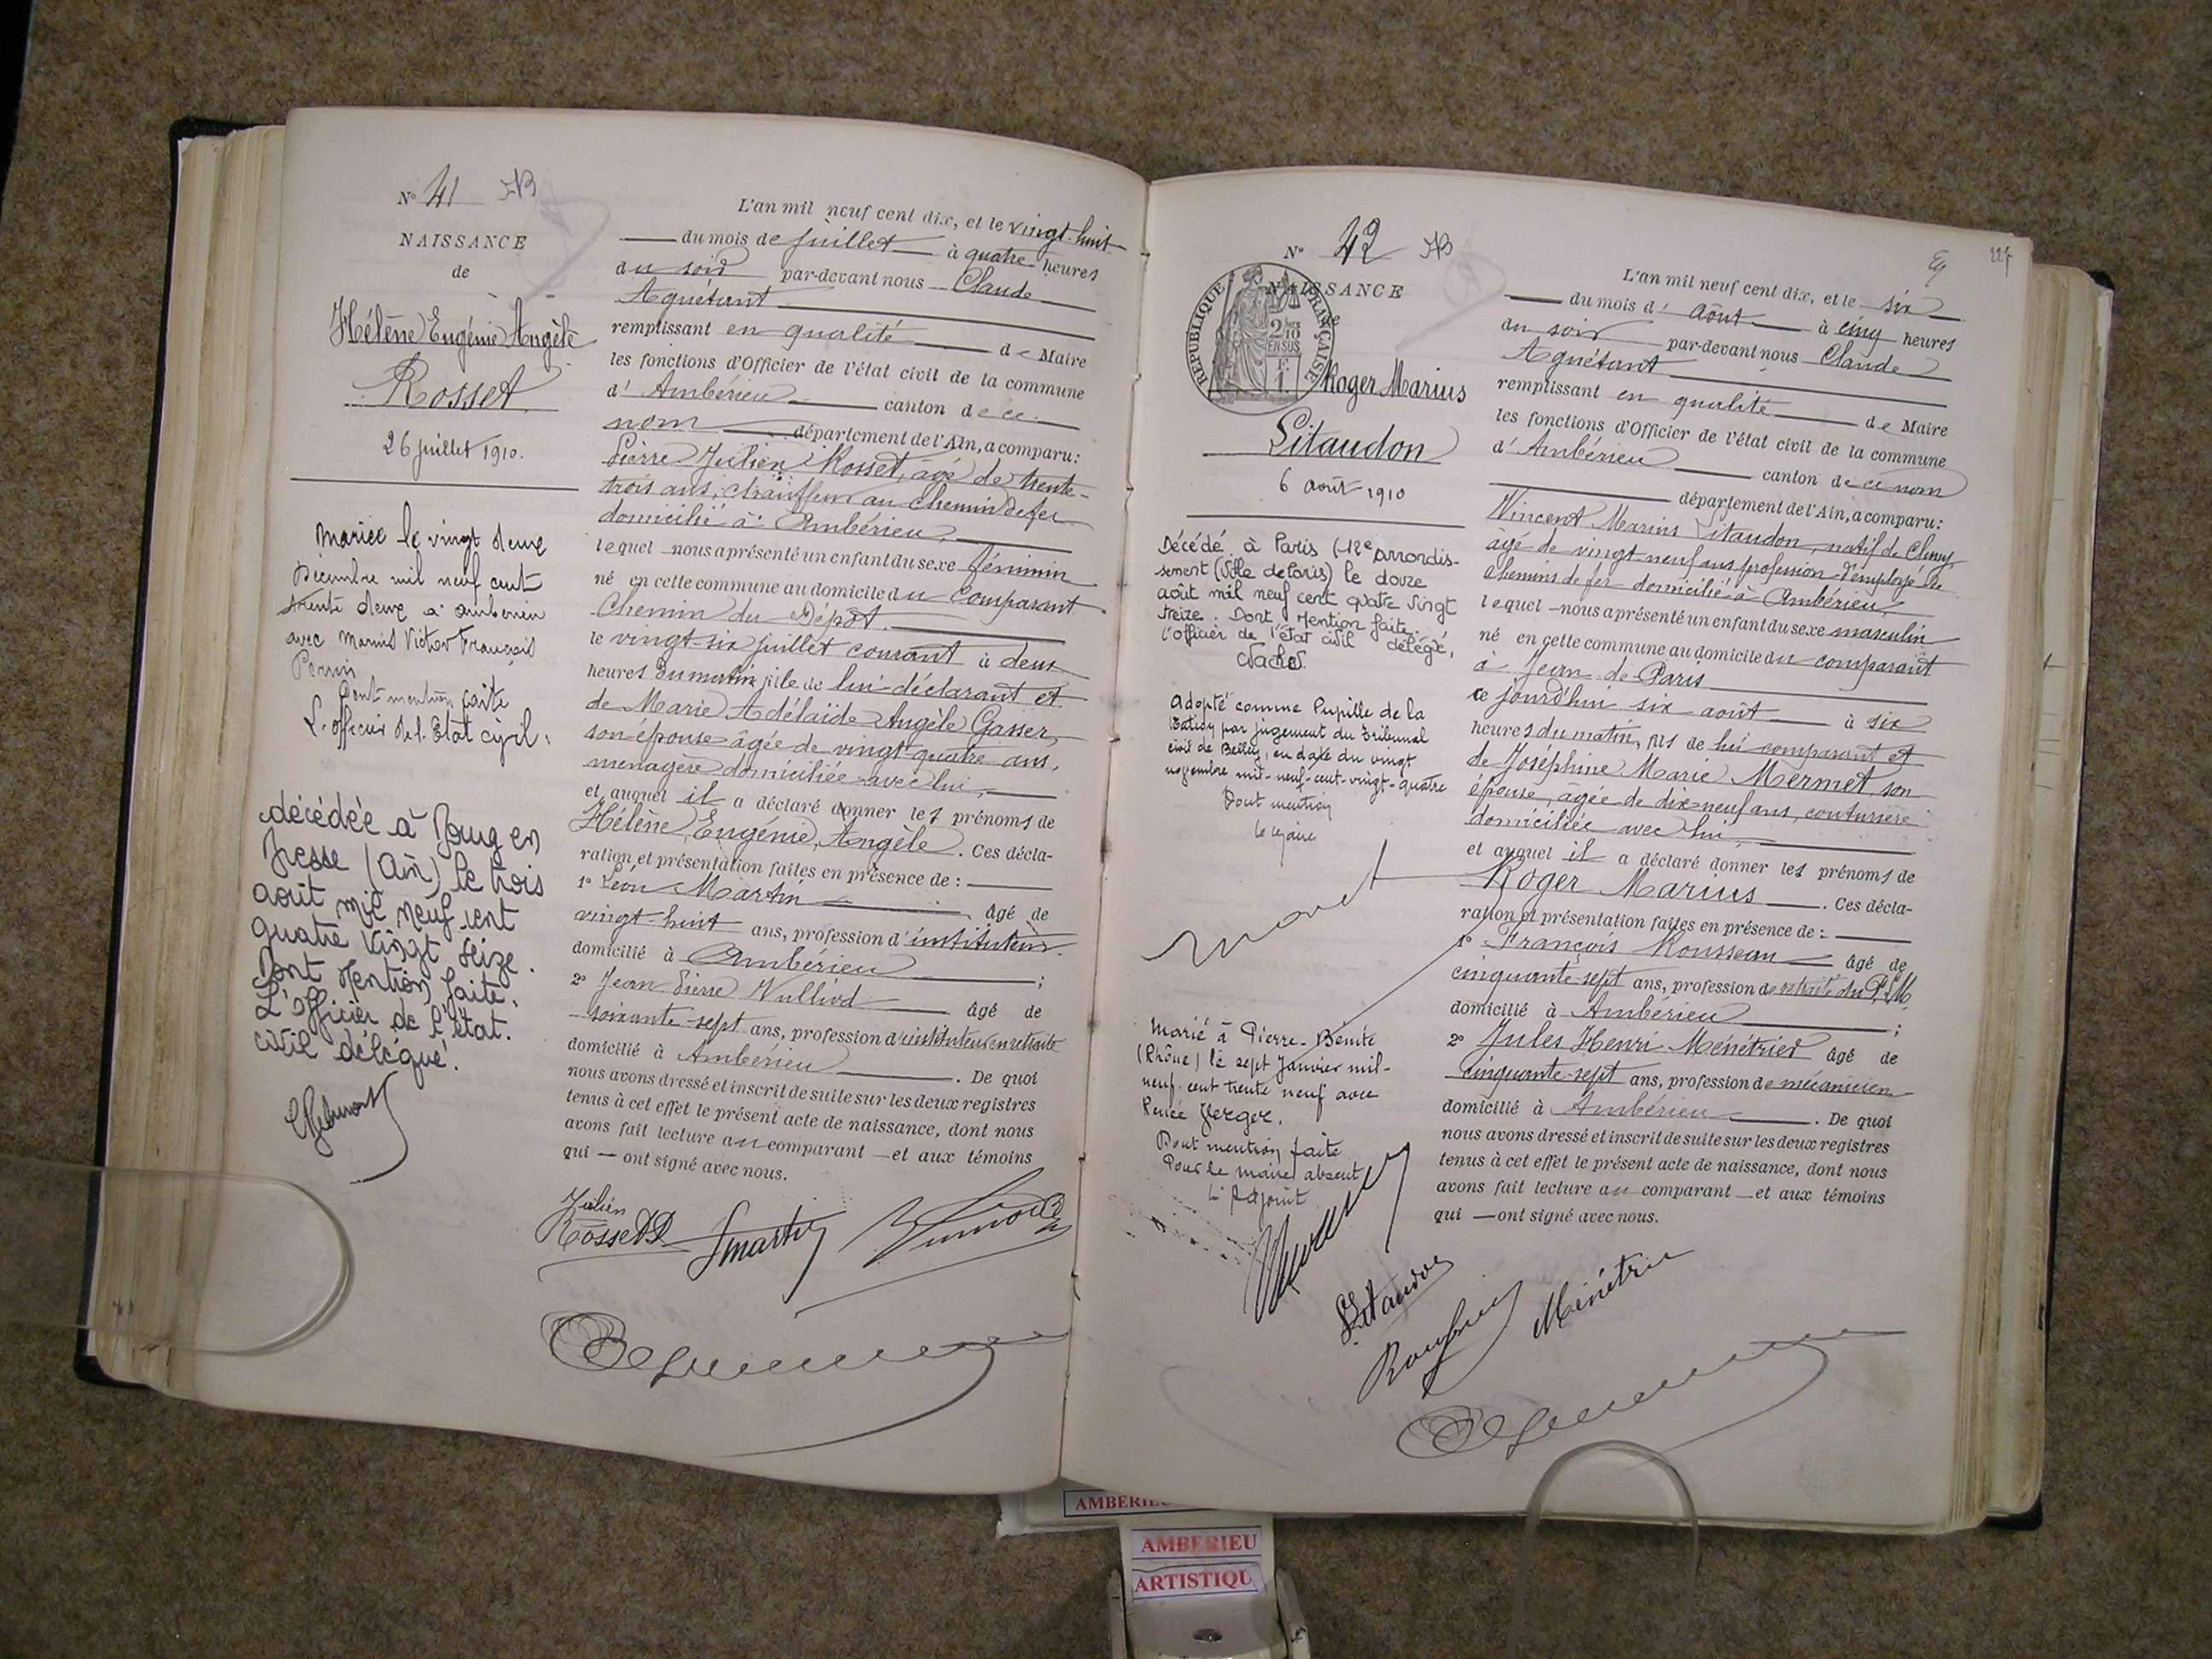 N° 41
NAISSANCE
de
Hélène Eugénie Angèle
Rosset
26 juillet 1910.
Mariée le vingt deux
Décembre mil neuf cent
trente deux à Ambérieu
avec Marius Victor François
Perrin
Dont mention faite
L'officier de l'Etat civil :
décédée à Bourg en
Bresse (Ain) le trois
août mil neuf cent
quatre vingt seize.
Dont Mention faite.
L'officier de l'état.
civil délégué.
L'an mil neuf cent dix, et le vingt-huit
du mois de juillet à quatre heures
du soir par-devant nous Claude
Aguétant
remplissant en qualité de Maire
les fonctions d'Officier de l'état civil de la commune
d'Ambérieu canton de ce
nom département de l'Ain, a comparu :
Pierre Julien Rosset, âgé de trente-
trois ans, chauffeur au chemin de fer
domicilié à Ambérieu,
lequel nous a présenté un enfant du sexe féminin
né en cette commune au domicile du comparant
Chemin du Dépôt.
le vingt-six juillet courant à deux
heures du matin, fille de lui déclarant et
de Marie Adélaïde Angèle Gasser,
son épouse âgée de vingt-quatre ans,
ménagère domiciliée avec lui,
et auquel il a déclaré donner les prénoms de
Hélène, Eugénie, Angèle. Ces décla-
ration et présentation faites en présence de :
1° Léon Martin âgé de
vingt-huit ans, profession d'instituteur.
domicilié à Ambérieu ;
2° Jean Pierre Vulliod âgé de
soixante-sept ans, profession d'instituteur en retraite
domicilié à Ambérieu . De quoi
nous avons dressé et inscrit de suite sur les deux registres
tenus à cet effet le présent acte de naissance, dont nous
avons fait lecture au comparant et aux témoins
qui — ont signé avec nous.
Julien
Rosset
Martin
N° 42
NAISSANCE
de
RÉPUBLIQUE FRANÇAISE
2/10 EN SUS
Roger Marius
Litaudon
6 août 1910
Décédé à Paris (12e Arrondis-
sement (Ville de Paris) le douze
août mil neuf cent quatre vingt
treize. Dont Mention faite.
l'officier de l'état civil délégué,
Adopté comme Pupille de la
Nation par jugement du Tribunal
civil de Belley, en date du vingt
novembre mil-neuf-cent-vingt-quatre
Dont mention
Le Maire
Marié à Pierre-Bénite
(Rhône) le sept Janvier mil-
neuf-cent trente neuf avec
Renée Jerger.
Dont mention faite
Pour le maire absent
L'Adjoint
227
L'an mil neuf cent dix, et le six
du mois d'août à cinq heures
du soir par-devant nous Claude
Aguétant
remplissant en qualité de Maire
les fonctions d'Officier de l'état civil de la commune
d'Ambérieu canton de ce nom
département de l'Ain, a comparu :
Vincent Marius Litaudon, natif de
âgé de vingt neuf ans profession d'employé de
chemins de fer domicilié à Ambérieu,
lequel nous a présenté un enfant du sexe masculin
né en cette commune au domicile du comparant
à Jean de Paris
ce jourd'hui six août à six
heures du matin, fils de lui comparant et
de Joséphine Marie Mermet, son
épouse, âgée de dix-neuf ans, couturière
domiciliée avec lui,
et auquel il a déclaré donner les prénoms de
Roger Marius . Ces décla-
ration et présentation faites en présence de :
1° François Rousseau âgé de
cinquante-sept ans, profession de retraité du P.L.M.
domicilié à Ambérieu ;
2° Jules Henri Ménétrier âgé de
cinquante-sept ans, profession de mécanicien
domicilié à Ambérieu . De quoi
nous avons dressé et inscrit de suite sur les deux registres
tenus à cet effet le présent acte de naissance, dont nous
avons fait lecture au comparant et aux témoins
qui — ont signé avec nous.
Litaudon
Ménétrier
AMBERIEU
ARTISTIQU